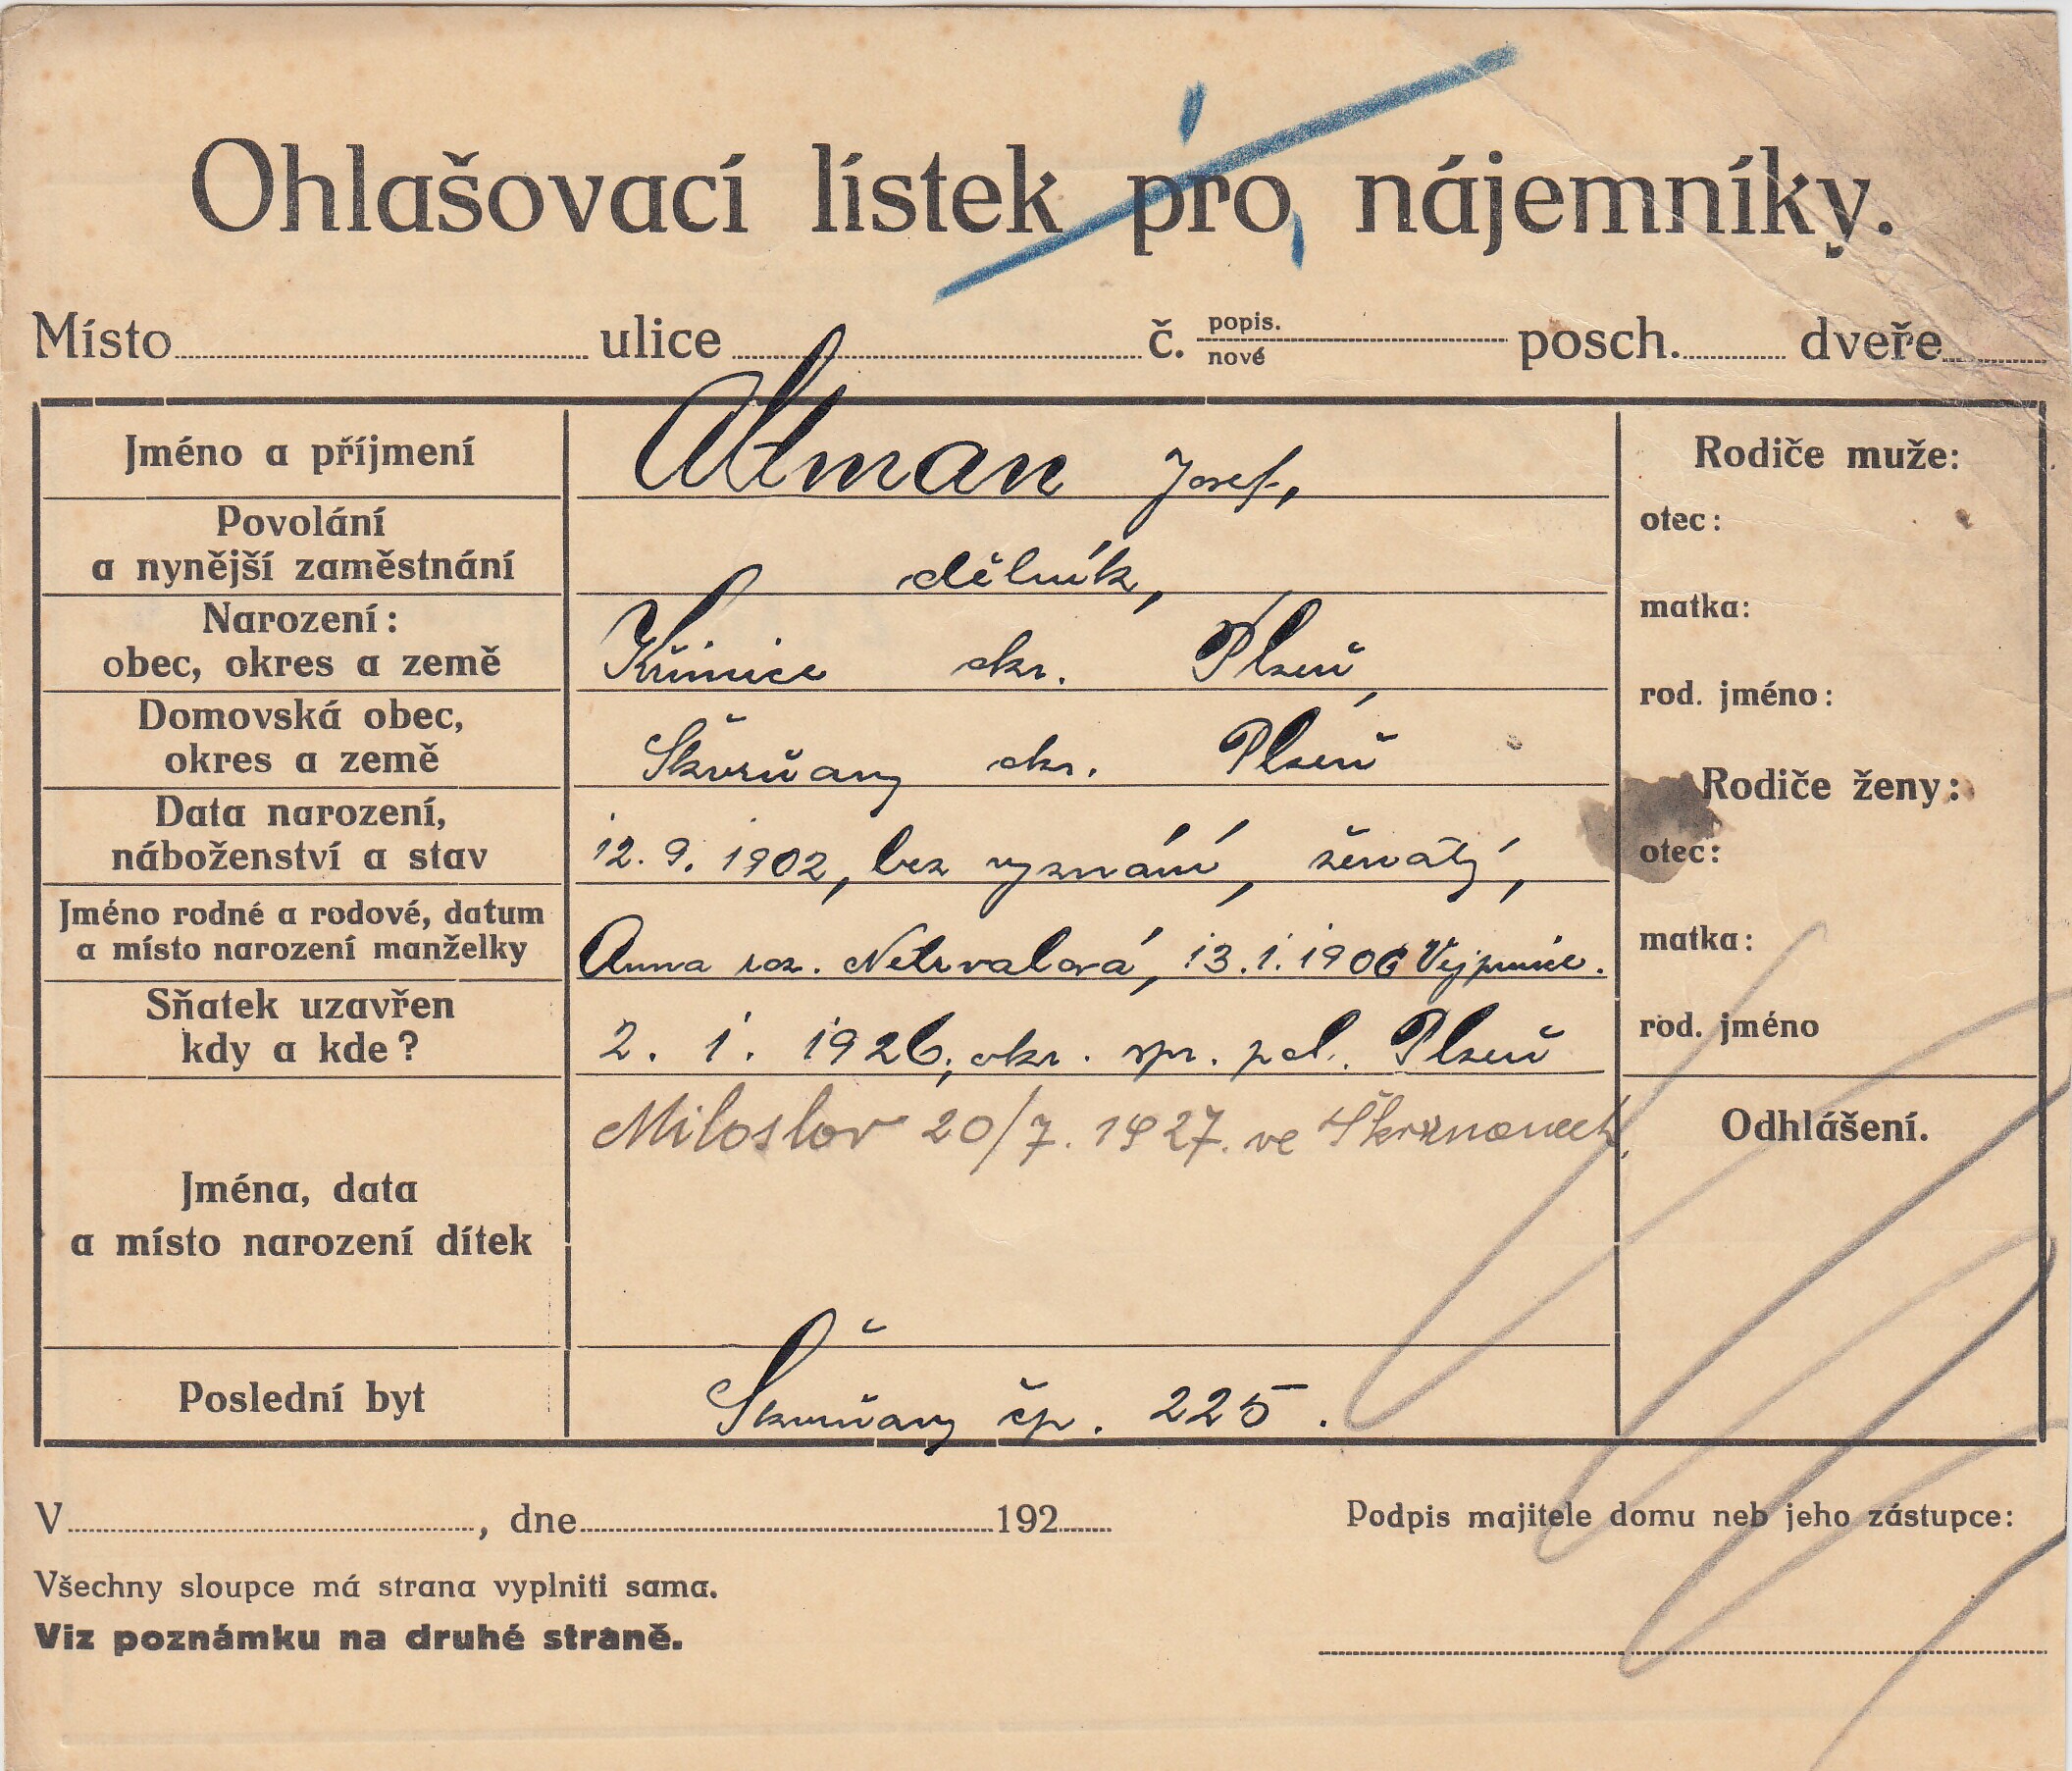 Ohlašovací lístek pro nájemníky.
Místo ulice č. popis. nové posch. dveře
Jméno a příjmení
Altman Josef,
Povolání
a nynější zaměstnání
dělník,
Narození:
obec, okres a země
Křimice okr. Plzeň,
Domovská obec,
okres a země
Škvrňany okr. Plzeň
Data narození,
náboženství a stav
12. 9. 1902, bez vyznání, ženatý,
Jméno rodné a rodové, datum
a místo narození manželky
Anna roz. Netrvalová, 13. 1. 1906 Vejprnice.
Sňatek uzavřen
kdy a kde?
2. 1. 1926, okr. spr. pol. Plzeň
Jména, data
a místo narození dítek
Miloslav 20/7. 1927. ve
Poslední byt
Škvrňany čp. 225.
Rodiče muže:
otec:
matka:
rod. jméno:
Rodiče ženy:
otec:
matka:
rod. jméno
Odhlášení.
V , dne 192
Podpis majitele domu neb jeho zástupce:
Všechny sloupce má strana vyplniti sama.
Viz poznámku na druhé straně.